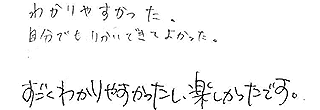 わかりやすかった。
自分でもりかいできてよかった。
すごくわかりやすかったし、楽しかったです。